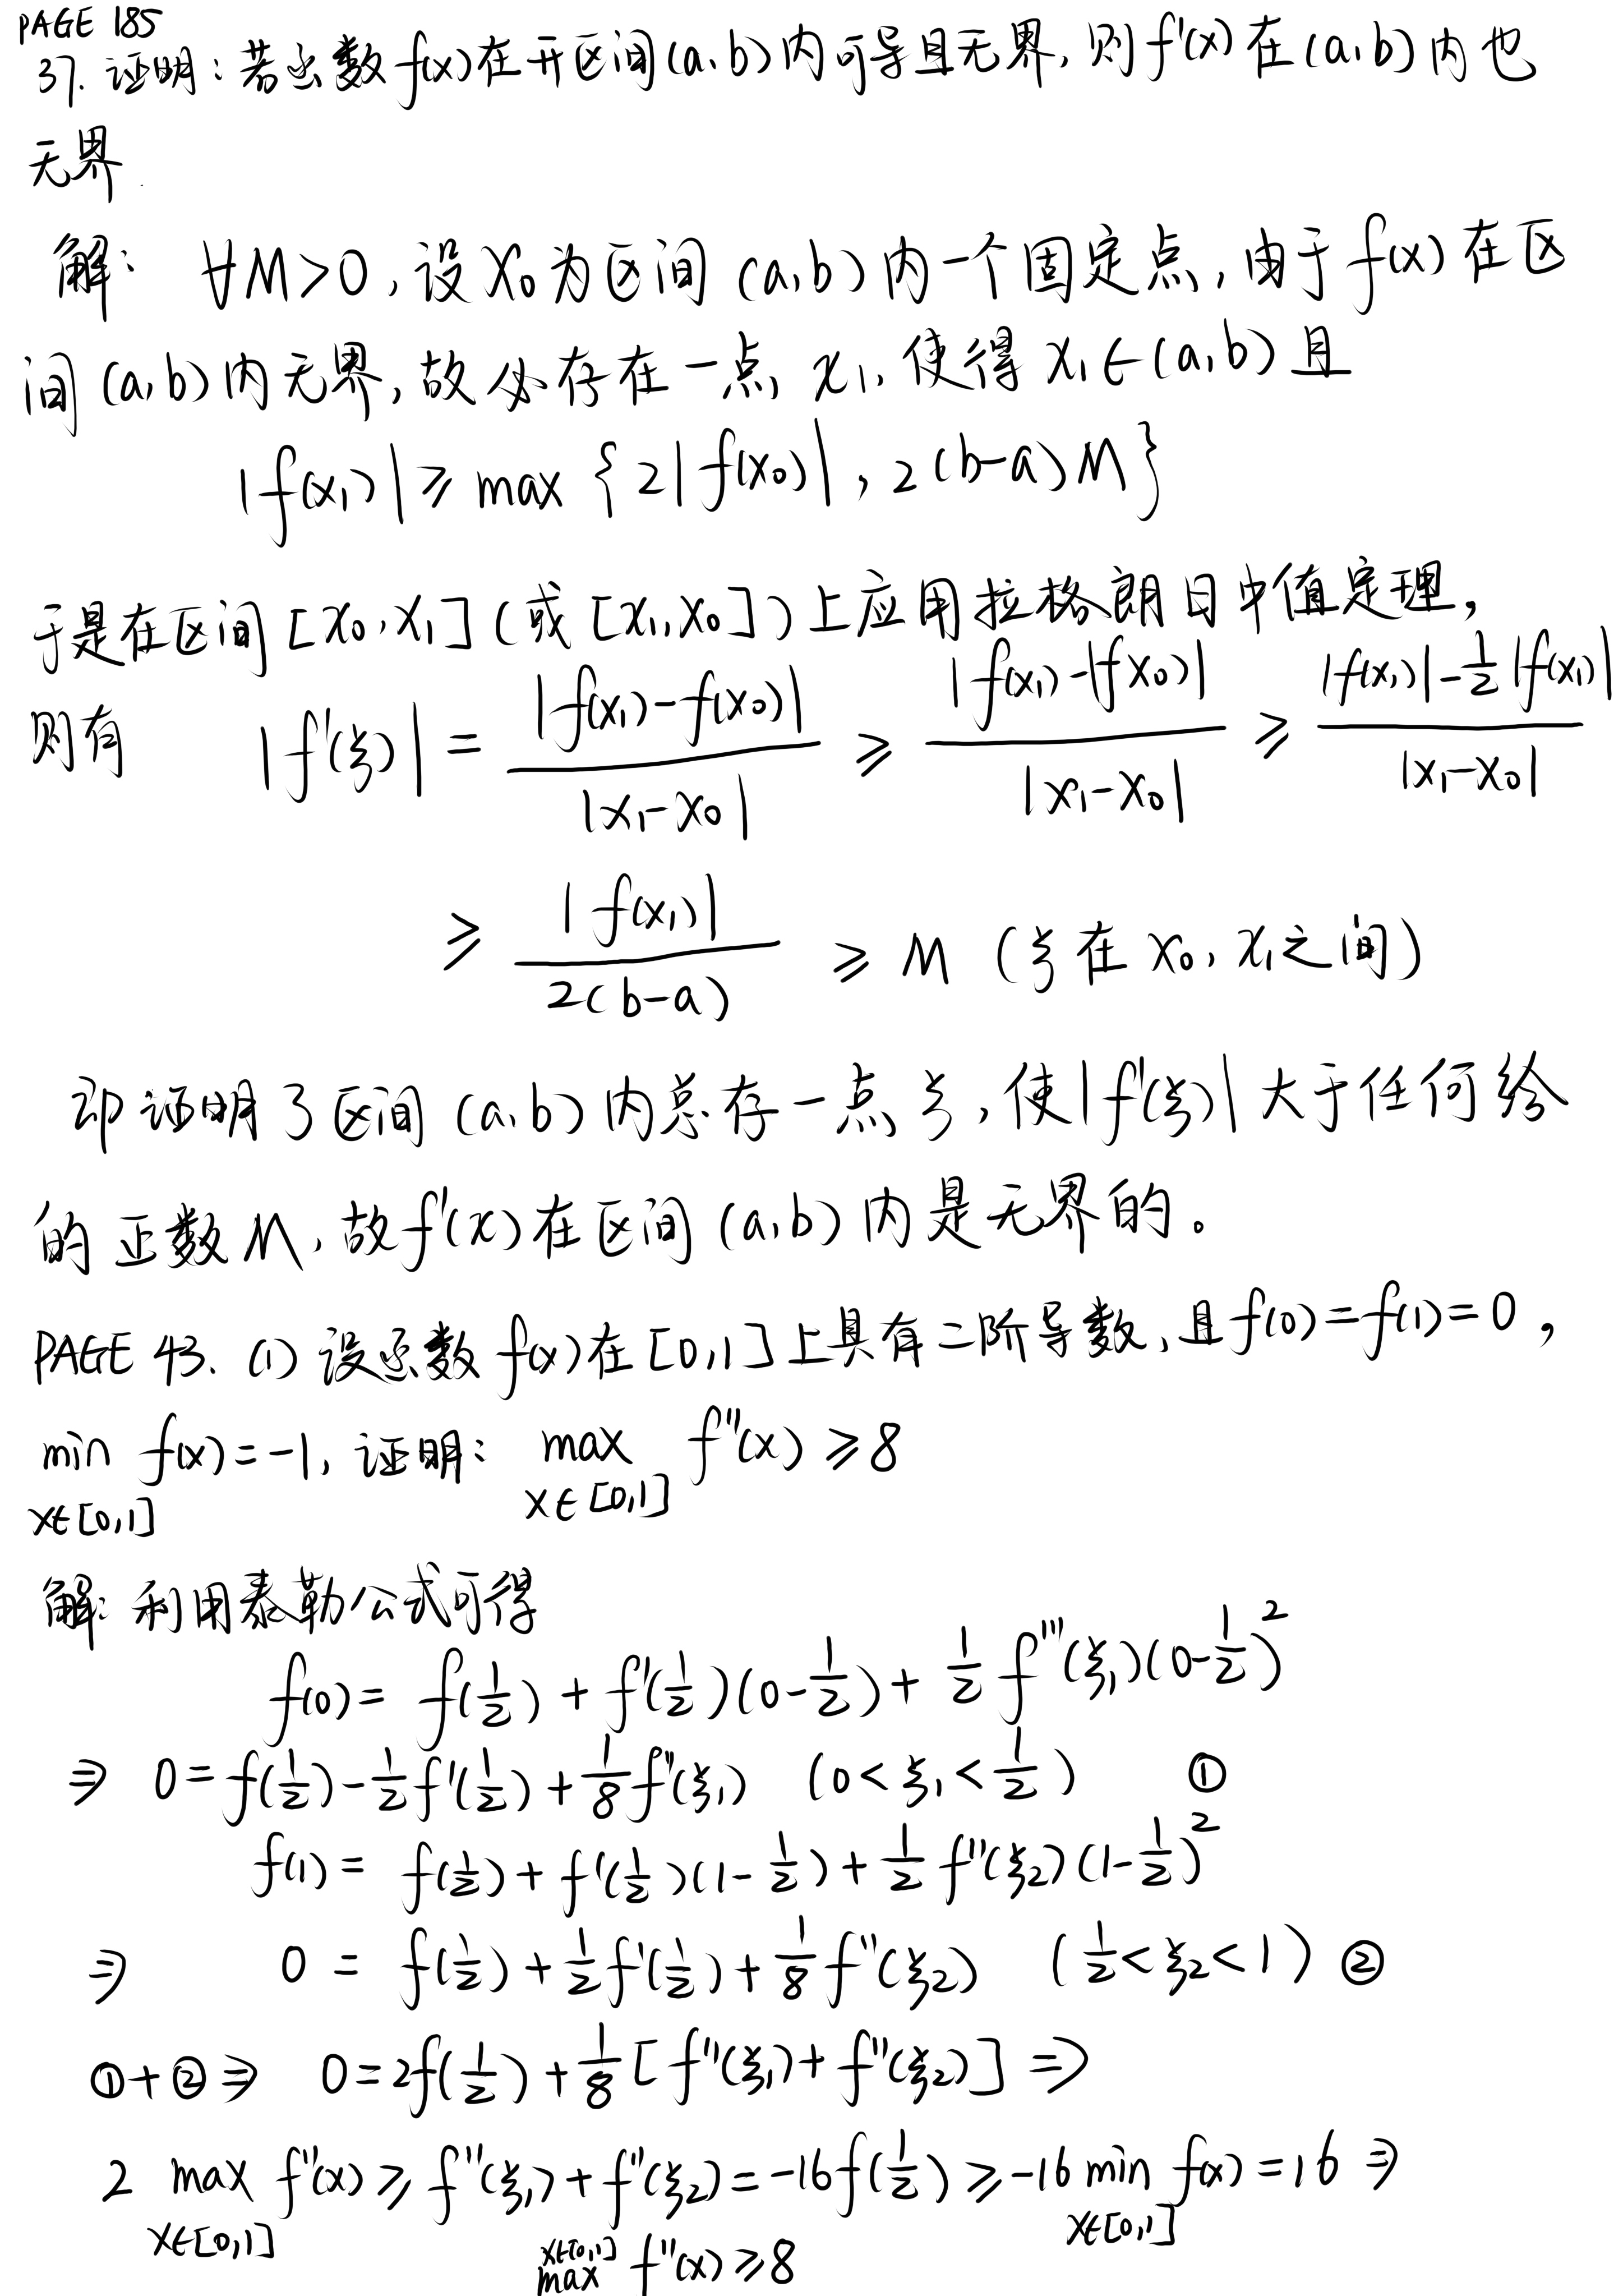 PAGE 185
37. 证明：若函数 f(x) 在开区间(a,b)内可导且无界, 则 f'(x) 在 (a,b) 内也
无界.
解： ∀M>0, 设 x₀ 为区间 (a,b) 内一个固定点, 由于 f(x) 在区
间 (a,b) 内无界, 故必存在一点 x₁, 使得 x₁∈(a,b) 且
|f(x₁)| ≥ max {2|f(x₀)|, 2(b-a)M}
于是在区间 [x₀,x₁] (或 [x₁,x₀]) 上应用拉格朗日中值定理,
则有 |f'(ξ)| = |f(x₁)-f(x₀)| / |x₁-x₀| ≥ |f(x₁)-|f x₀)| / |x₁-x₀| ≥ (|f(x₁)|-½|f(x₁)|) / |x₁-x₀|
≥ |f(x₁)| / 2(b-a) ≥ M (ξ在 x₀, x₁之间)
即证明了区间 (a,b) 内总存一点ξ, 使|f'(ξ)| 大于任何给
的正数 M, 故 f'(x) 在区间 (a,b) 内是无界的。
PAGE 43. (1) 设函数 f(x)在[0,1]上具有二阶导数, 且 f(0)=f(1)=0,
min f(x)=-1, 证明: max f''(x) ≥8
x∈[0,1] x∈[0,1]
解: 利用泰勒公式可得
f(0) = f(½) + f'(½)(0-½) + ½ f'''(ξ₁)(0-½)²
⇒ 0=f(½)-½f'(½)+⅛f''(ξ₁) (0<ξ₁<½) ①
f(1) = f(½) + f'(½)(1-½) + ½ f''(ξ₂)(1-½)²
⇒ 0 = f(½)+½f'(½)+⅛f''(ξ₂) (½<ξ₂<1) ②
①+②⇒ 0=2f(½)+⅛[f''(ξ₁)+f''(ξ₂)] ⇒
2 max f''(x) ≥ f''(ξ₁)+f''(ξ₂)=-16f(½) ≥ -16 min f(x) = 16 ⇒
x∈[0,1] x∈[0,1] x∈[0,1]
max f''(x) ≥8